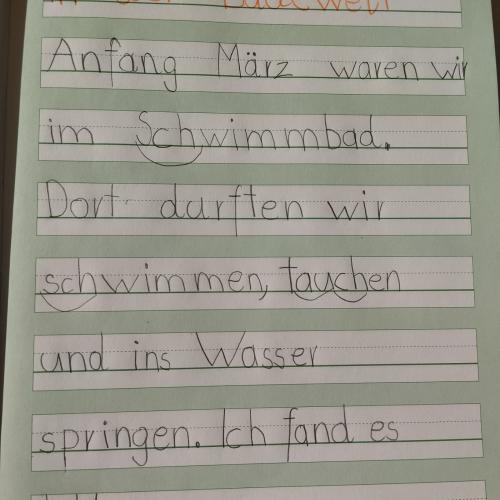 Anfang März waren wir
im Schwimmbad.
Dort durften wir
schwimmen, tauchen
und ins Wasser
springen. Ich fand es